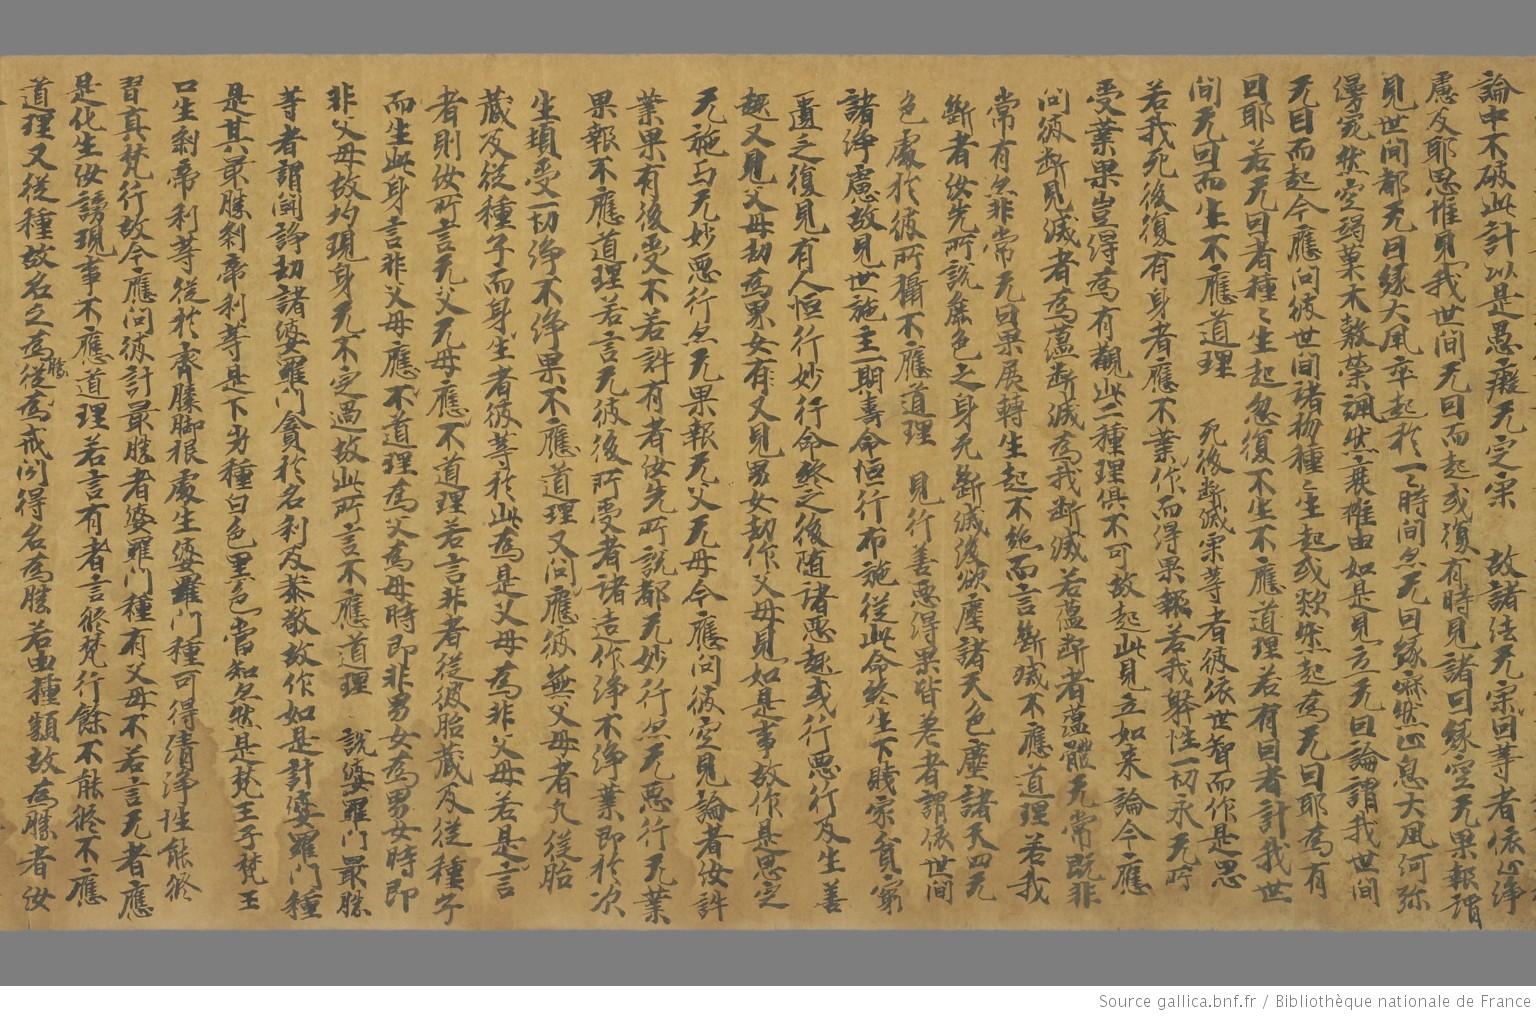 論中不破此計以是愚癡无定宗　故諸法无宗回等者依止淨
慮及耶思惟見我世間无曰而起或復有時見諸曰緣空无果報謂
見世間都无曰緣大風卒起於一時間忽无曰緣寂然止息大風何弥
漫宛然空竭菓木敷榮颯然衰摧由如是見立无曰論謂我世間
无曰而起今應問彼世間諸物種〻生起或欻然起為无曰耶為有
曰耶若无曰者種〻生起忽復不生不應道理若有曰者計我世
間无曰而生不應道理　死後斷滅宗等者彼依世智而作是思
若我死後復有身者應不業作而得果報若我躰性一切永无所
受業果豈得為有觀此二種理俱不可故起此見立如来論今應
問彼斷見滅者為蘊斷滅為我斷滅若蘊斷者蘊體无常既非
常有忽非常无曰果展轉生起不絶而言斷滅不應道理若我
斷者汝先所說麁色之身无斷滅後欲塵諸天色塵諸天四无
色處於彼所攝不應道理　見行善惡得果皆差者謂依世間
諸淨慮故見世施主一期壽命恒行布施從此命終生下賤家貧窮
匱乏復見有人恒行妙行命終之後随諸惡趣或行惡行及生善
趣又見父母劫為男女有又見男女劫作父母見如是事故作是思定
无施与无妙惡行忽无果報无父无母今應問彼空見論者汝許
業果有後受不若許有者汝先所說都无妙行忽无惡行无業
果報不應道理若言无彼後所受者諸造作淨不淨業即於次
生頓受一切淨不淨果不應道理又問應彼無父母者為從胎
藏及從種子而身生者彼等於此為是父母為非父母若是言
者則汝所言无父无母應不道理若言非者從彼胎藏及從種子
而生此身言非父母應不道理為父為母時即非男女為男女時即
非父母故均現身无不定過故此所言不應道理　說婆羅門最勝
等者謂鬪諍劫諸婆羅門貪於名利及恭敬故作如是計婆羅門種
是其最勝剎帝利等是下劣種白色黑色當知忽然是梵王子梵王
口生剎帝利等從於齊膝脚根處生婆羅門種可得清淨性能修
習真梵行故今應問彼計最勝者婆羅門種有父母不若言无者應
是化生汝謗現事不應道理若言有者言修梵行餘不能修不應
道理又從種故名之為勝從為戒聞得名為勝若由種類故為勝者汝